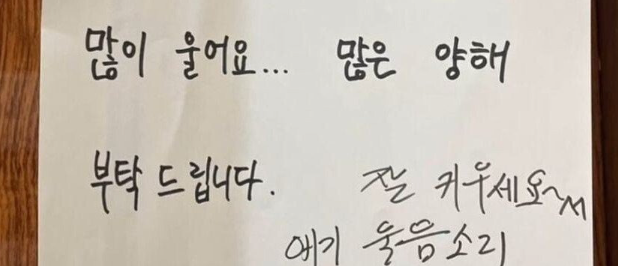 많이 울어요... 많은 양해
부탁 드립니다. 잘 키우세요~
애기 울음소리